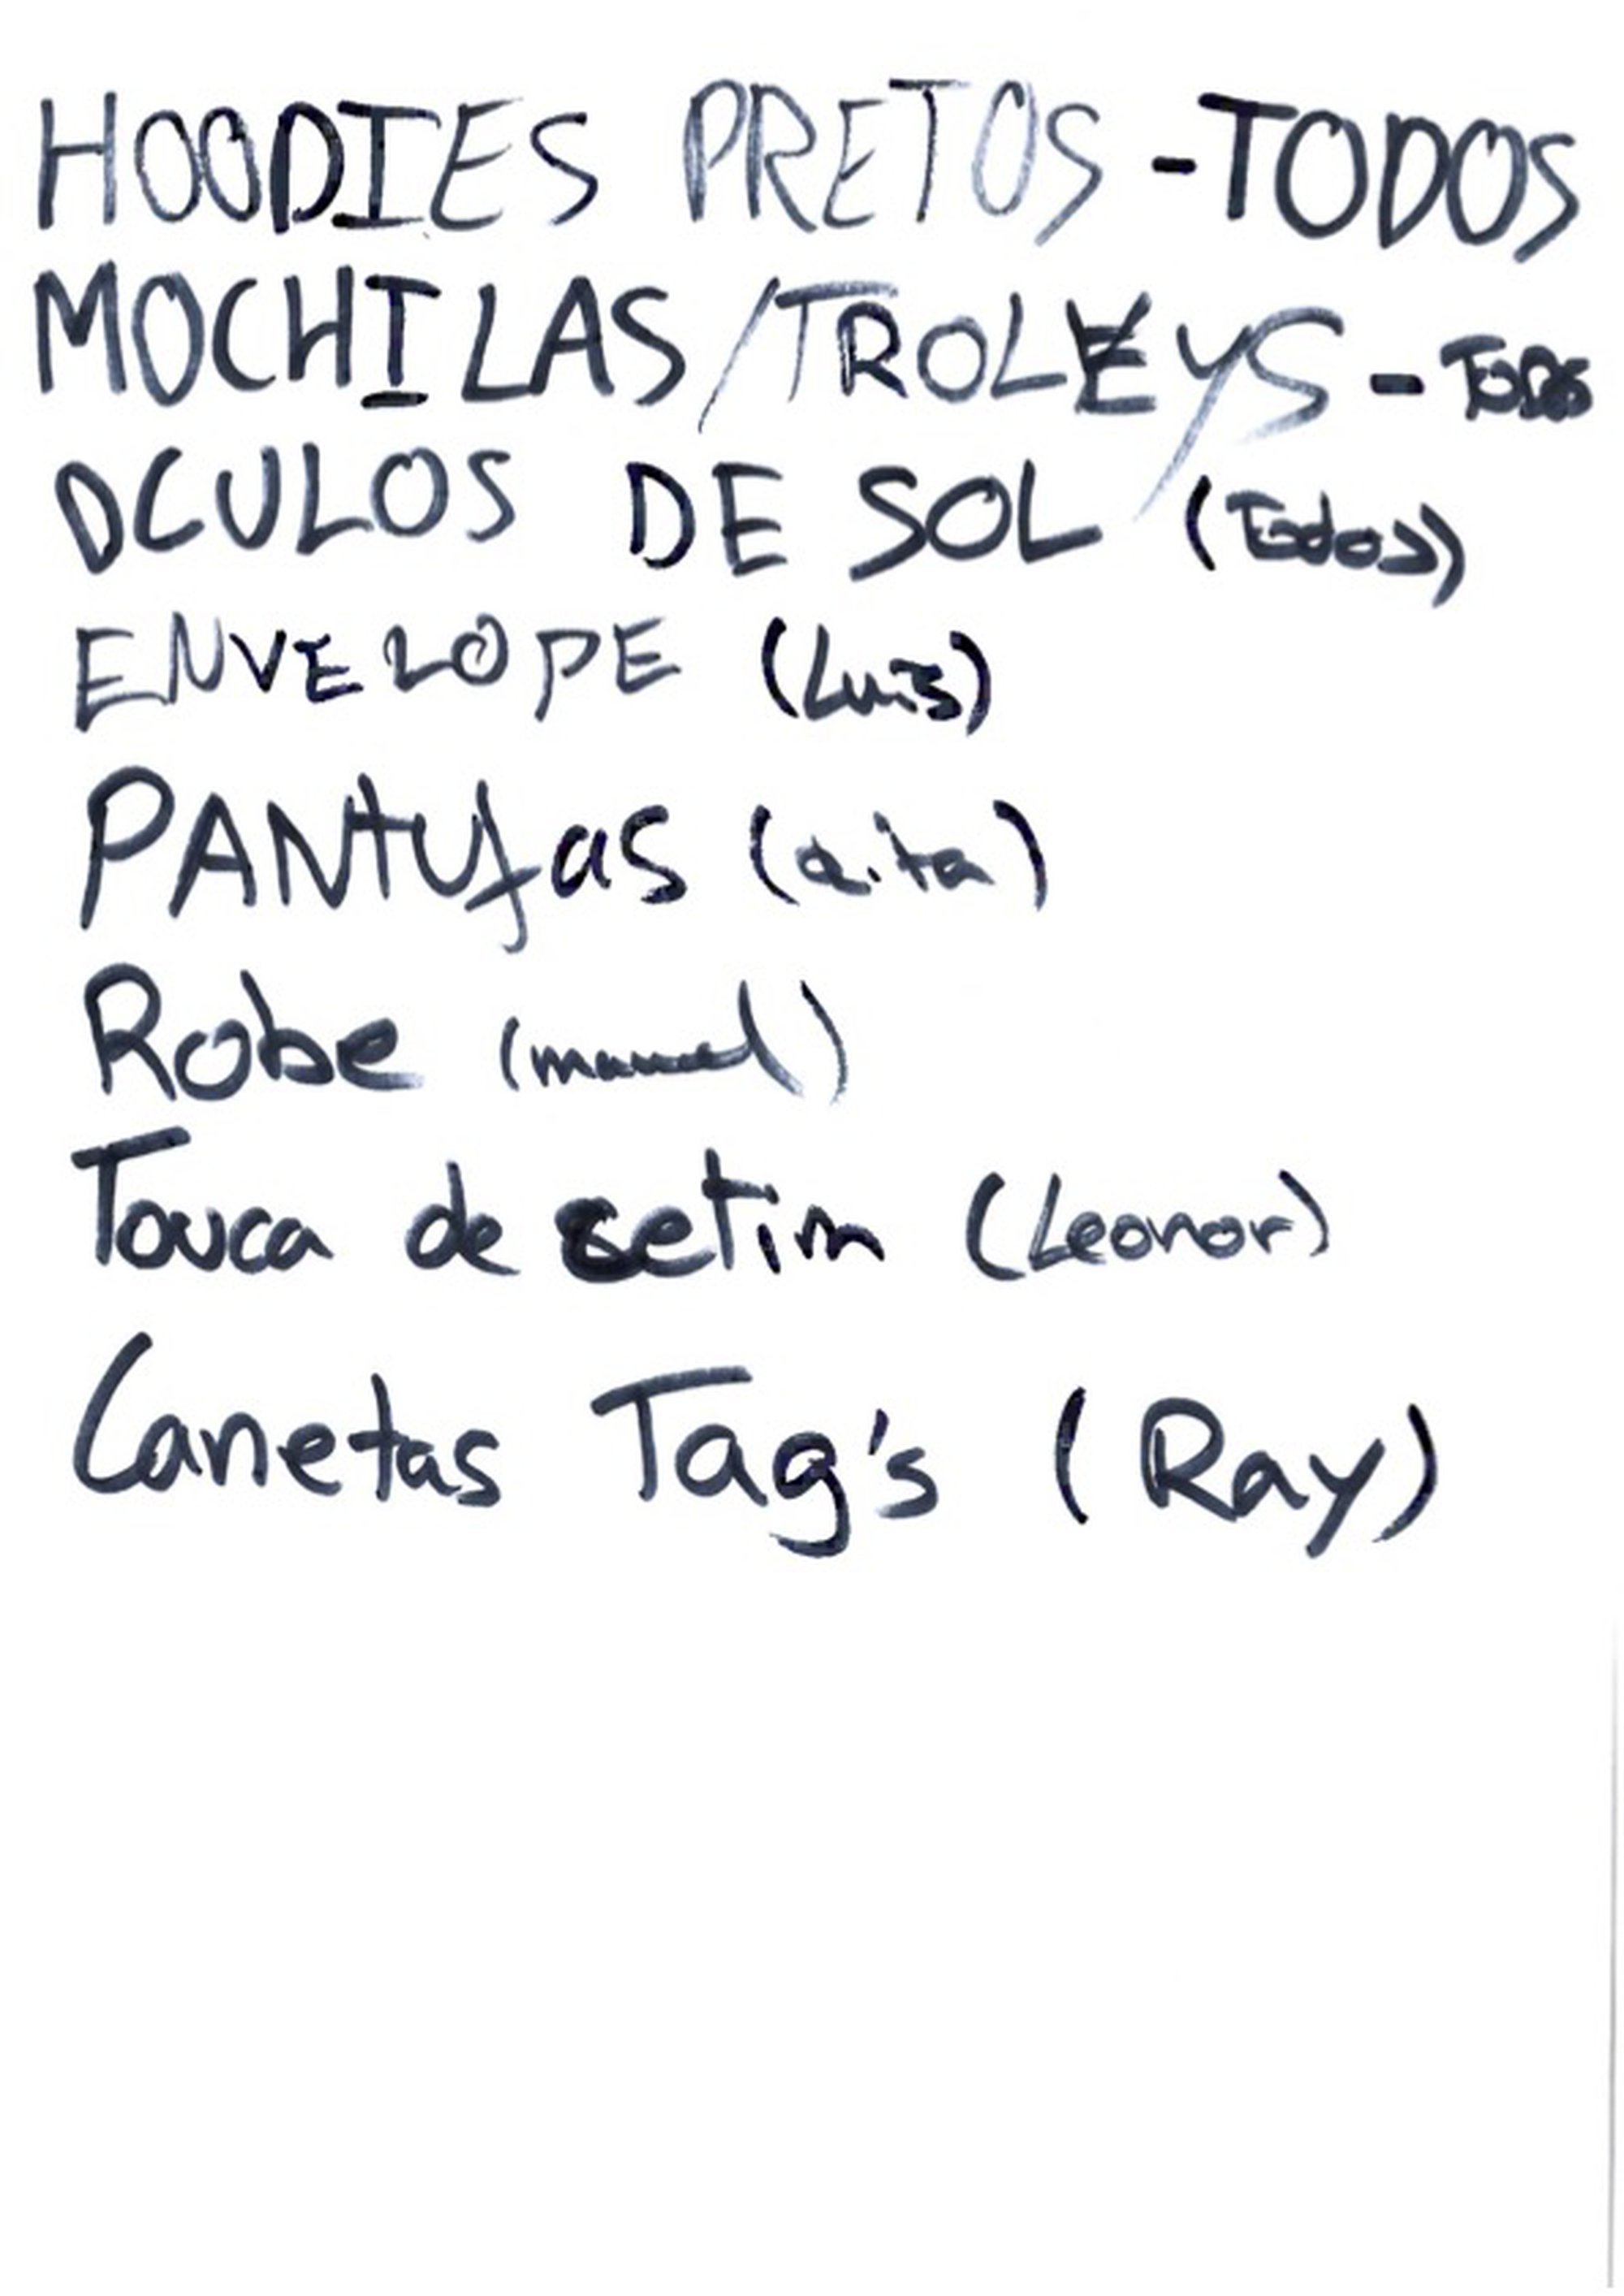 HOODIES PRETOS - TODOS
MOCHILAS/TROLEYS - TODOS
OCULOS DE SOL (Todos)
ENVELOPE (Luis)
PANtUfas (Rita)
Robe (manuel)
Touca de setim (Leonor)
Canetas Tag's (Ray)